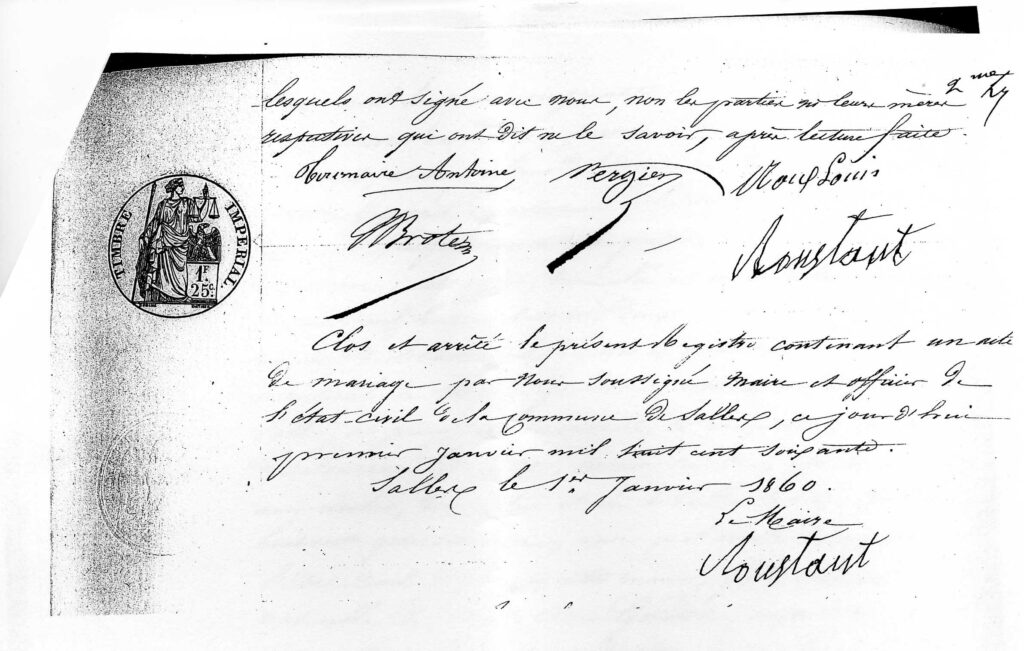 2me
lesquels ont signé avec nous, non les parties ni leurs mères
respectives qui ont dit ne le savoir, après lecture faite.
Antoine Vergier Roux Louis
Brotes
Roustant
TIMBRE IMPERIAL
1F
25c
Clos et arrêté le présent Registre contenant un acte
de mariage par nous soussigné Maire et officier de
l'état-civil de la Commune de Salles, ce jour d'hui
premier Janvier mil huit cent soixante.
Salles le 1er Janvier 1860.
Le Maire
Roustant